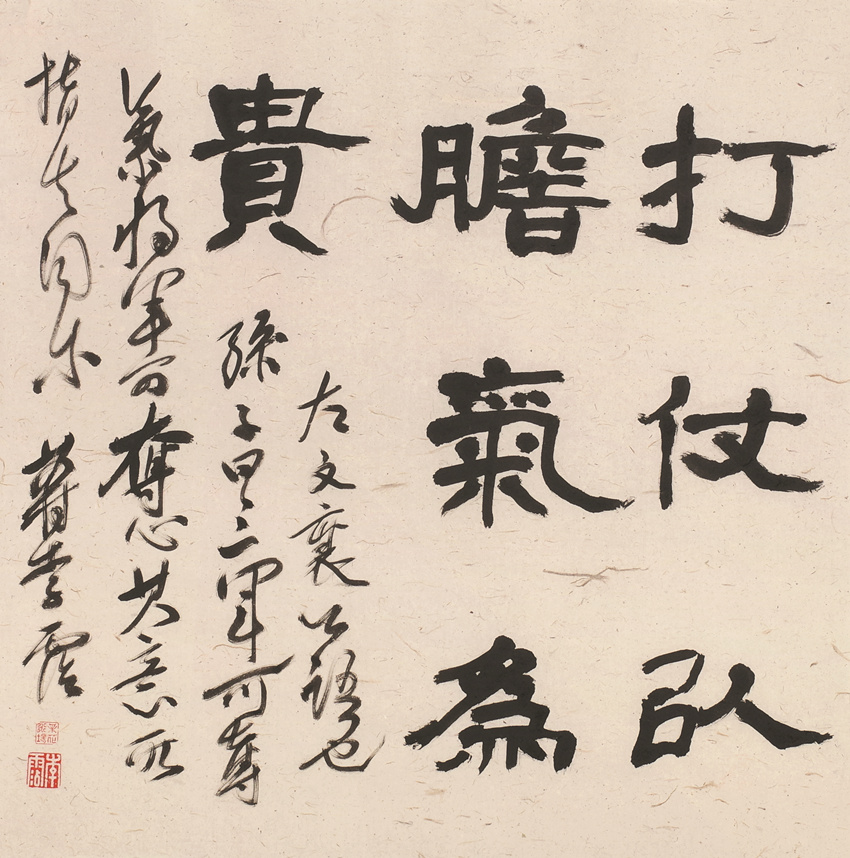 打仗以
膽氣為
貴
左文襄公語也
孫子曰三軍可奪
氣將軍可奪心其意所
指大同小
李